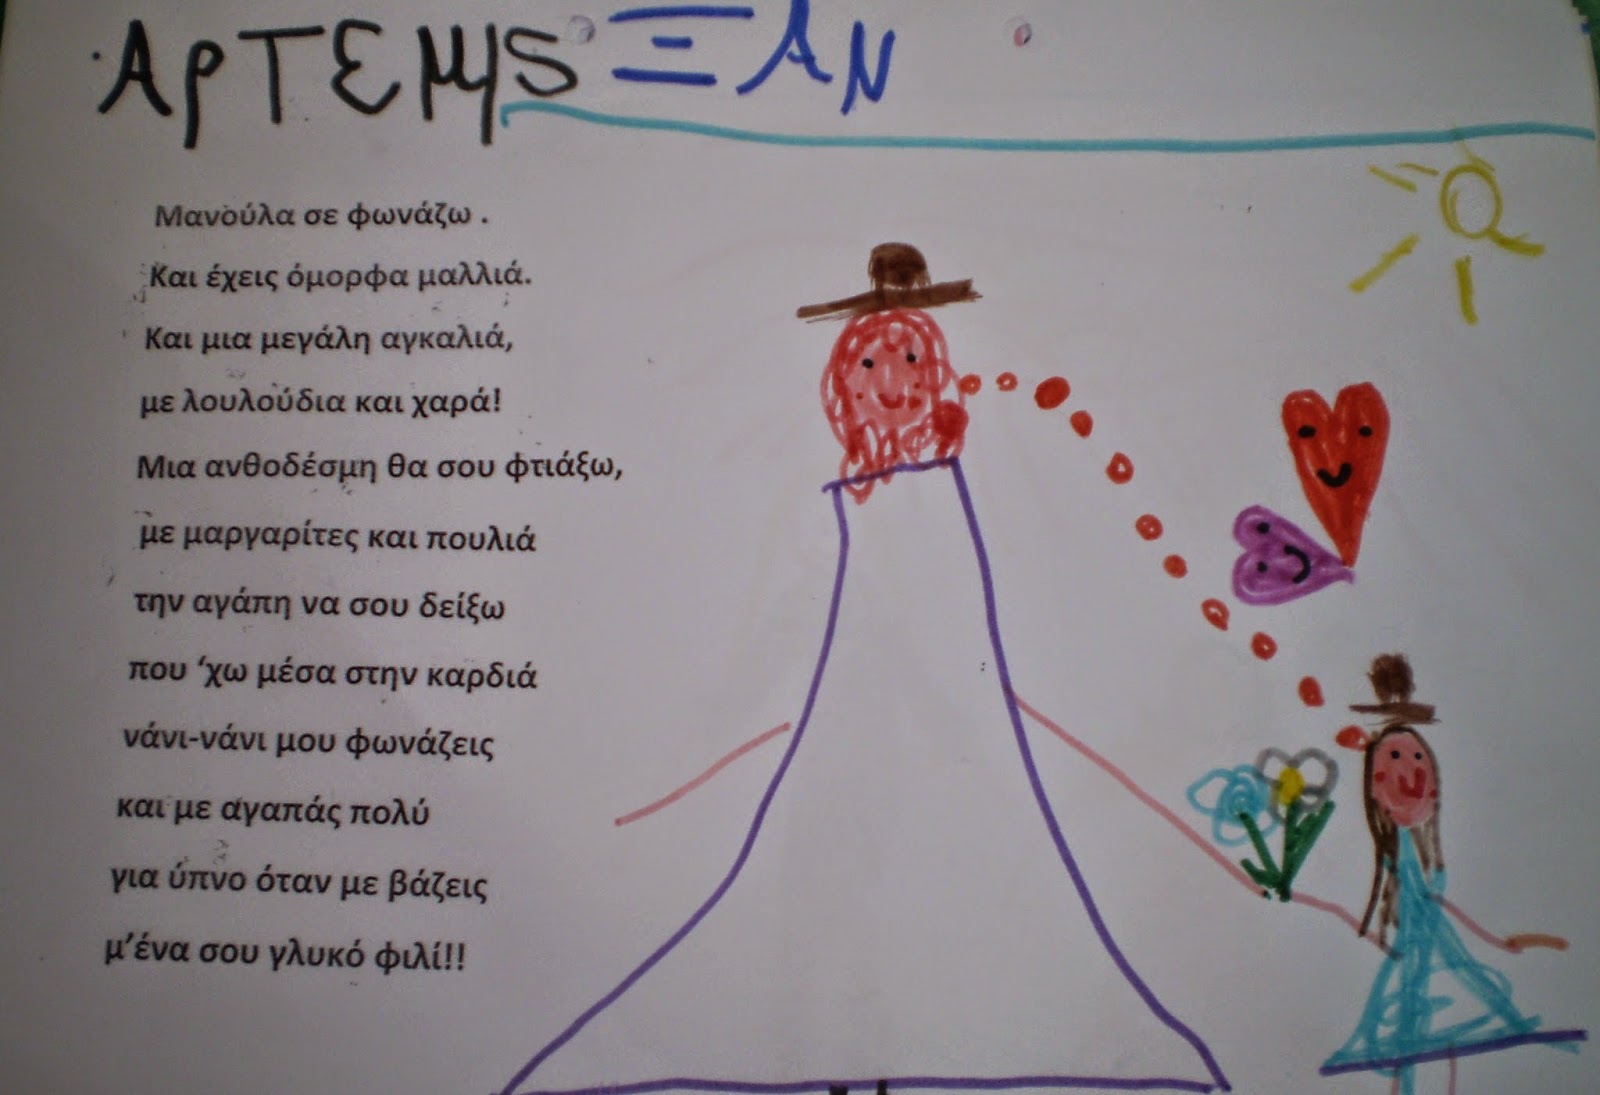 ΑΡΤΕΜΗS ΞΑΝ
Μανούλα σε φωνάζω .
Και έχεις όμορφα μαλλιά.
Και μια μεγάλη αγκαλιά,
με λουλούδια και χαρά!
Μια ανθοδέσμη θα σου φτιάξω,
με μαργαρίτες και πουλιά
την αγάπη να σου δείξω
που ‘χω μέσα στην καρδιά
νάνι-νάνι μου φωνάζεις
και με αγαπάς πολύ
για ύπνο όταν με βάζεις
μ’ένα σου γλυκό φιλί!!